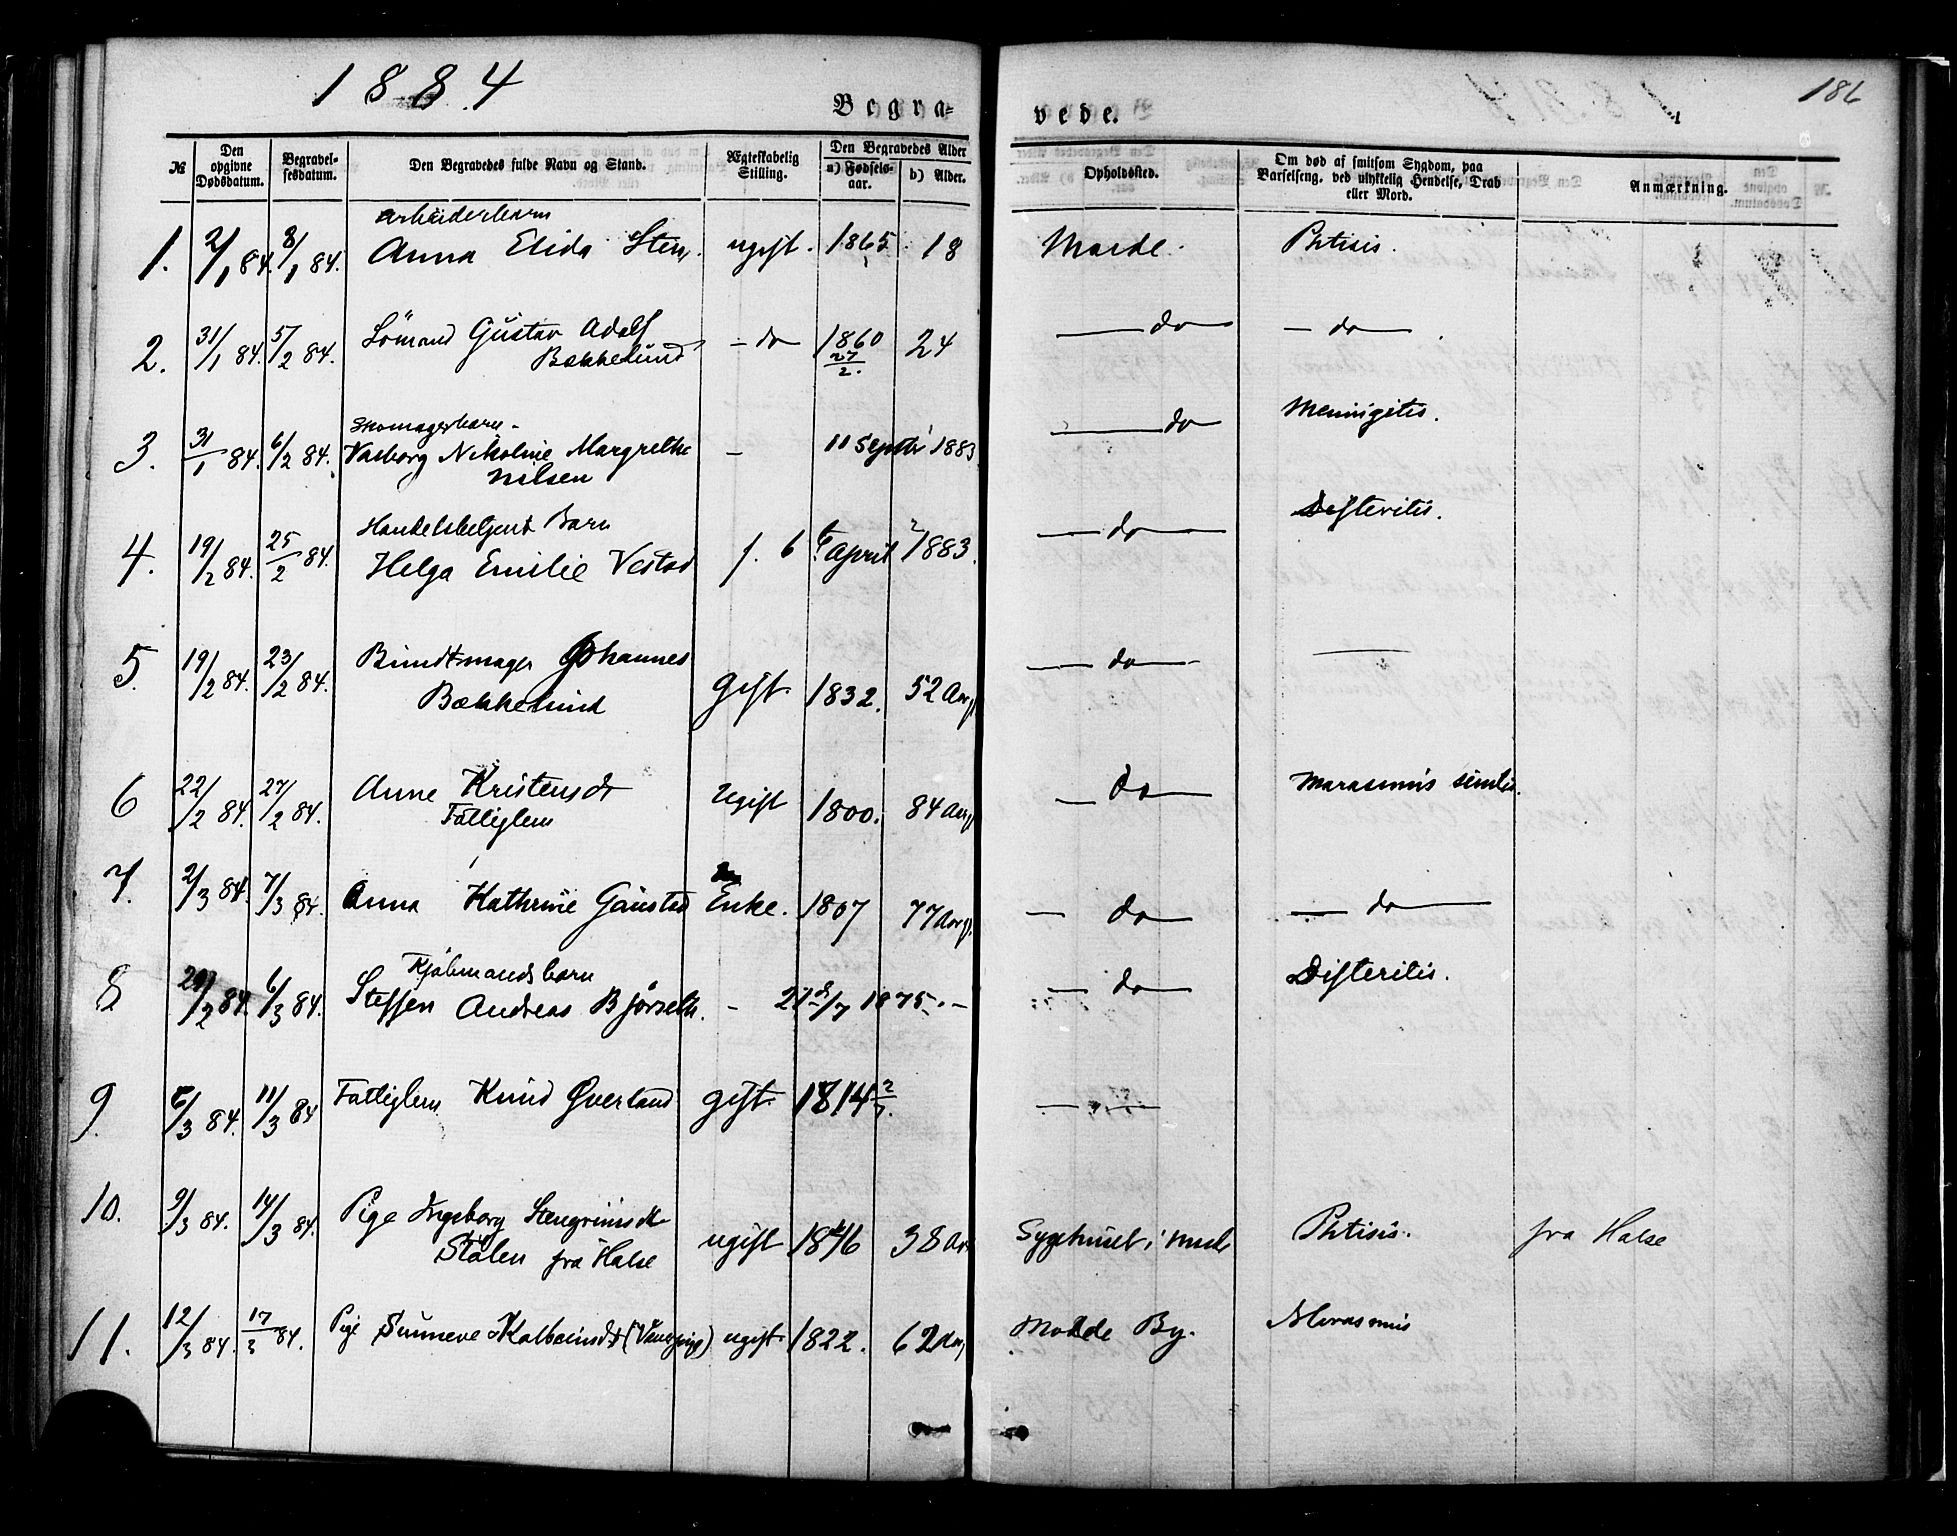 1884
186
Begra-
vede.
№
Den opgivne Dødsdatum.
Begravelsesdatum.
Den Begravedes fulde Navn og Stand.
Ægteskabelig Stilling.
Den Begravedes Alder
a) Fødselsaar.
b) Alder.
Opholdssted.
Om død af smitsom Sygdom, paa Barselseng, ved ulykkelig Hendelse, Drab eller Mord.
Anmærkning.
arbeiderbarn
1. 2/1 84. 8/1 84. Anna Elida Sten, ugift. 1865. 18 Phtisis.
2. 31/1 84. 5/2 84. Sømand Gustav Adolf Bækkelund - do 1860 27/2. 24 do do
Skomagerbarn
3. 31/1 84. 6/2 84. Nikoline Margrethe Nilsen - 11 Septbr 1883 do Meningitis.
Barn
4. 19/2 84. 25/2 84. Helga Emilie Vestad f. 6 April 1883. do Difteritis.
5. 19/2 84. 23/2 84. Bundtmager Johannes Bækkelund gift 1832. 52 Aar do
6 22/2 84. 27/2 84. Anne Kristensdt Fattiglem ugift 1800. 84 Aar do Marasmus senilis.
7. 2/3 84. 7/3 84. Anna Kathrine Gaustad Enke. 1807 77 Aar do do
Kjøbmandsbarn
8 /2 84. 6/3 84. Steffen Andreas Bjørseth. - 27/7 1875. - do Difteritis.
9. 6/3 84. 11/3 84 Fattiglem Knud Øverland gift 1814
10. 9/3 84. 14/3 84. Pige Ingeborg Stengrimsdt
Stølen fra Halse ugift 1846 38 Aar Sygehuset i Phtisis. fra Halse
11. 12/3 84. 17/3 84. Pige Sunneve Kolbeinsdt ugift 1822. 62 Aar Molde By. Marasmus